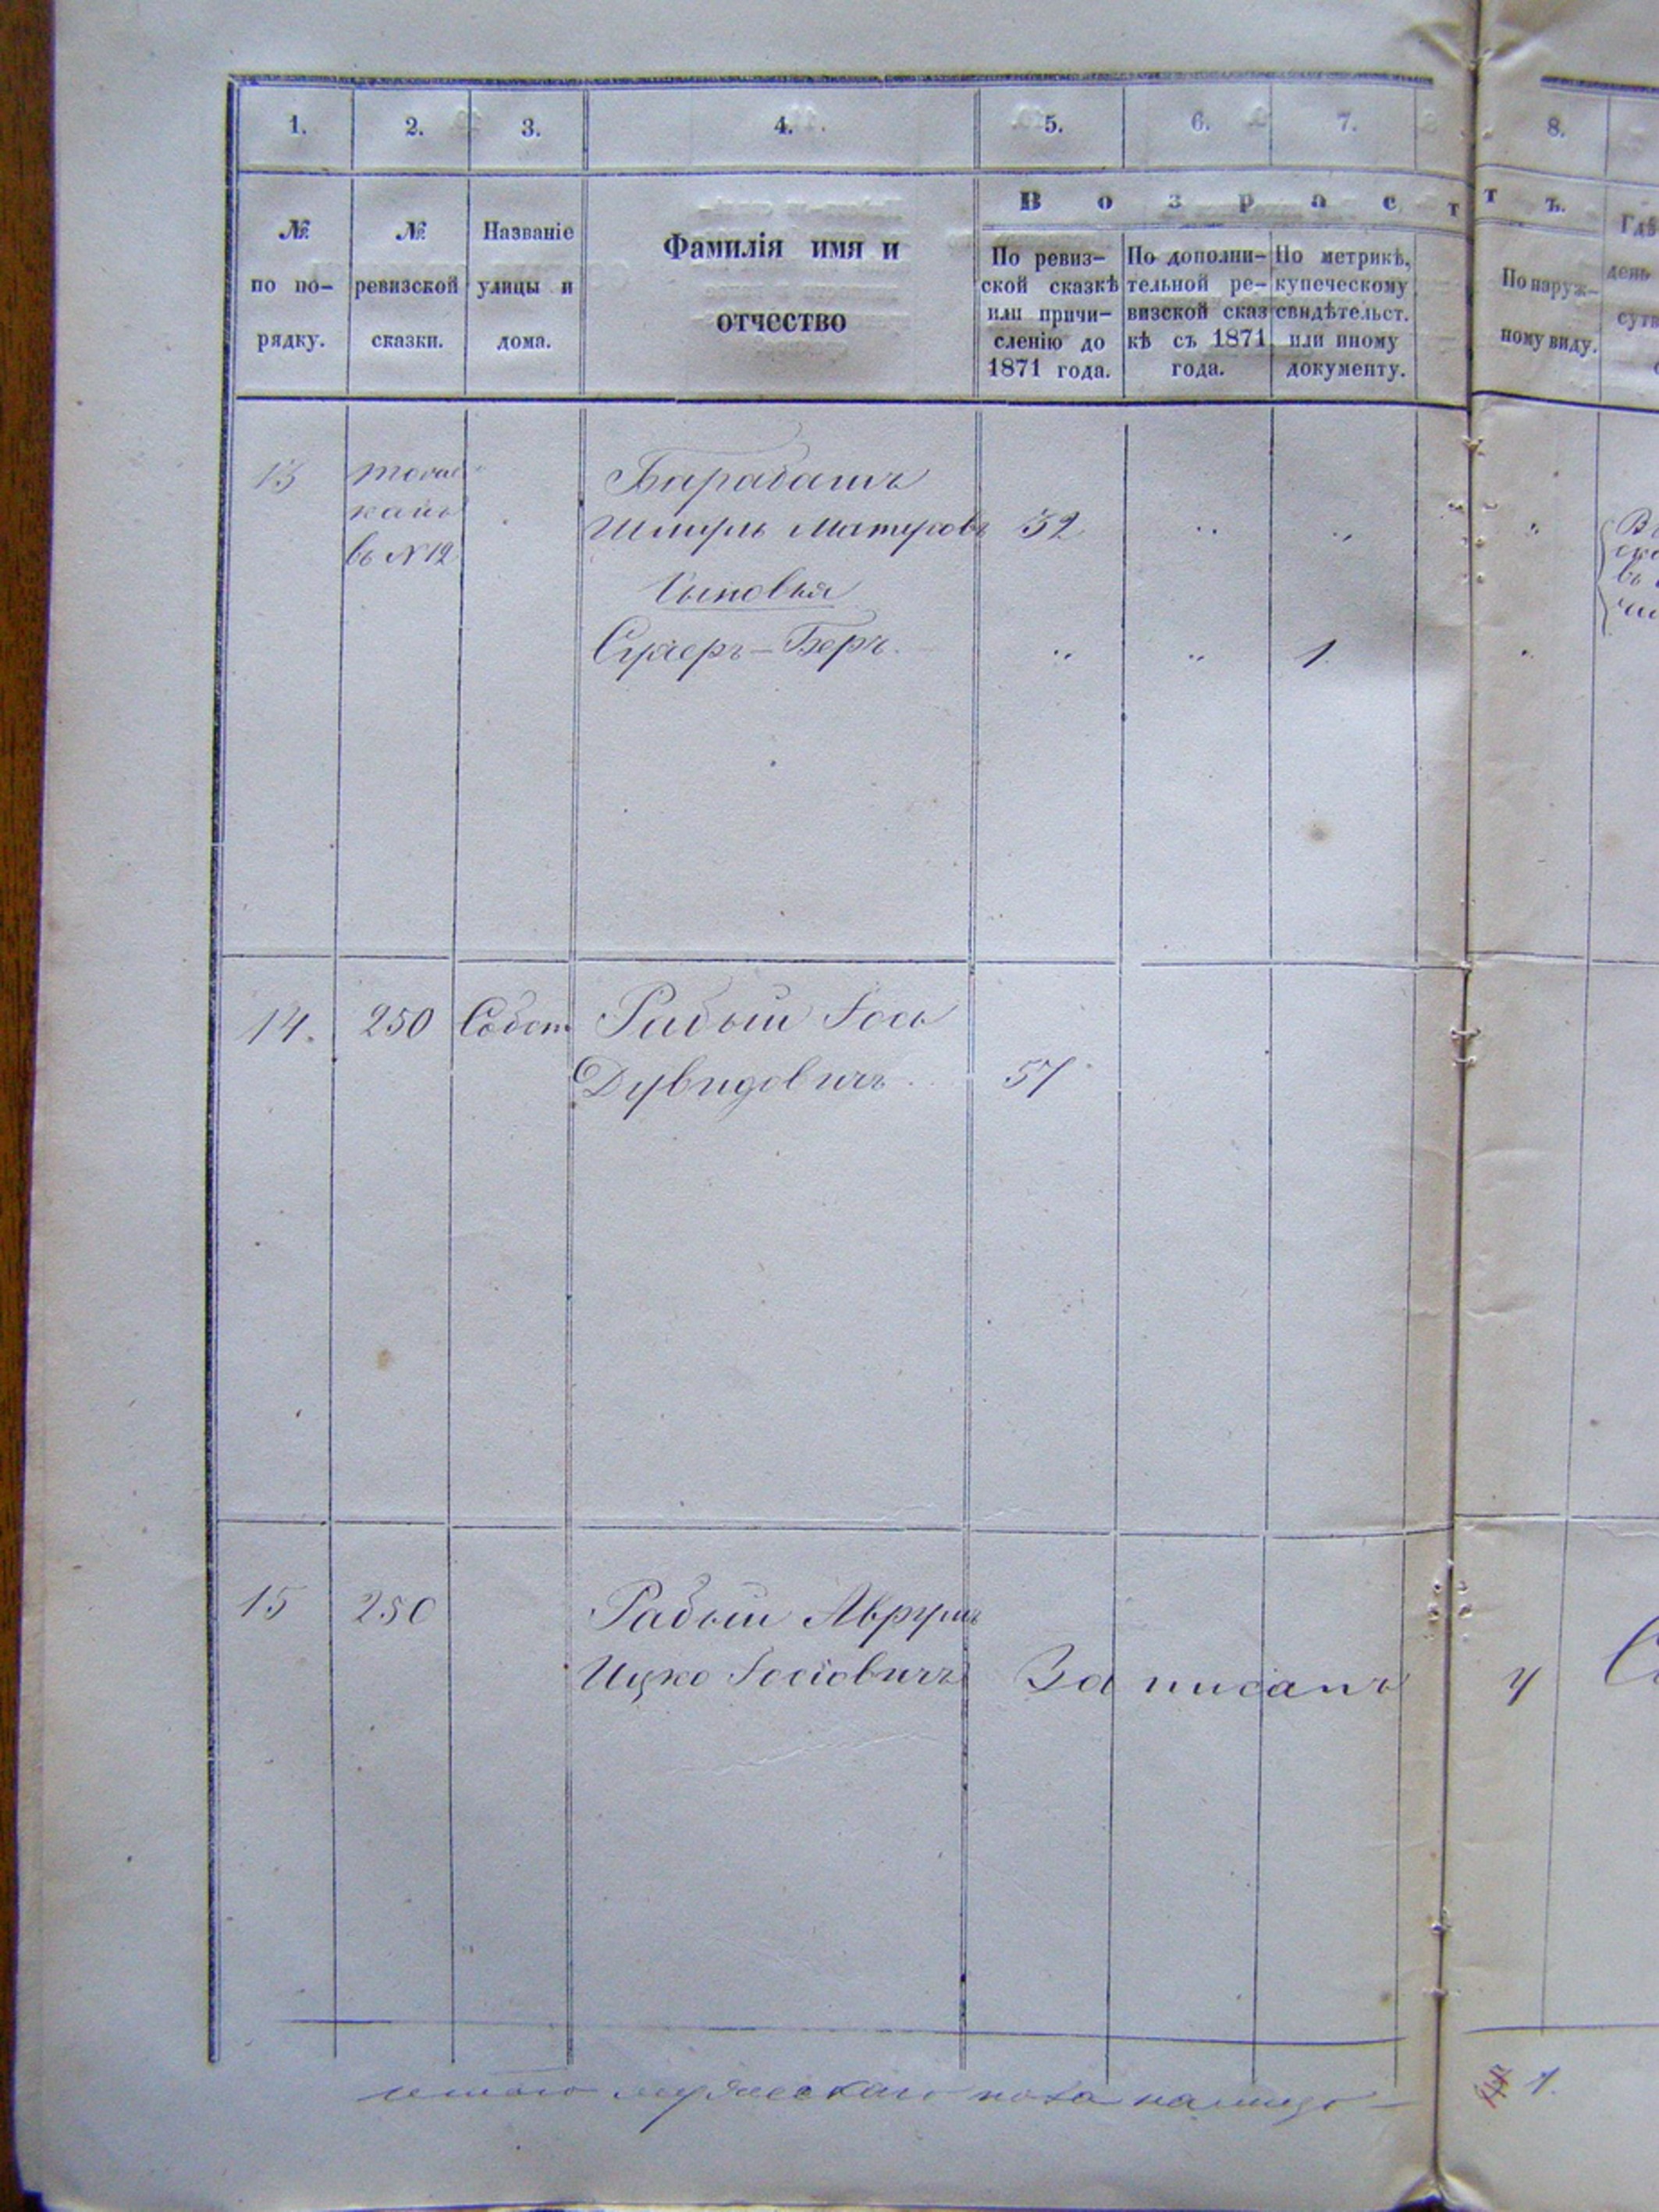 1. 2. 3. 4. 5. 6. 7. 8.
В о з р а с т т ъ.
№ по по- рядку.
№ ревизской сказки.
Названіе улицы и дома.
Фамилія имя и
отчество
По ревиз-
ской сказкѣ
или причи-
сленію до
1871 года.
По дополни-
тельной ре-
визской сказ
кѣ съ 1871
года.
По метрикѣ,
купеческому
свидѣтельст.
или иному
документу.
По наруж-
ному виду.
Гдѣ
день
13 Барабашъ
въ N 12
Шмуль 32 „ „ „
Сыновья
Беръ „ „ 1 „
14. 250 Собст Рабый Іось
Дувидовичъ 57
15 250 Рабый Аврумъ
Ицко Іосіовичъ Записанъ у
мужескаго пола
1.